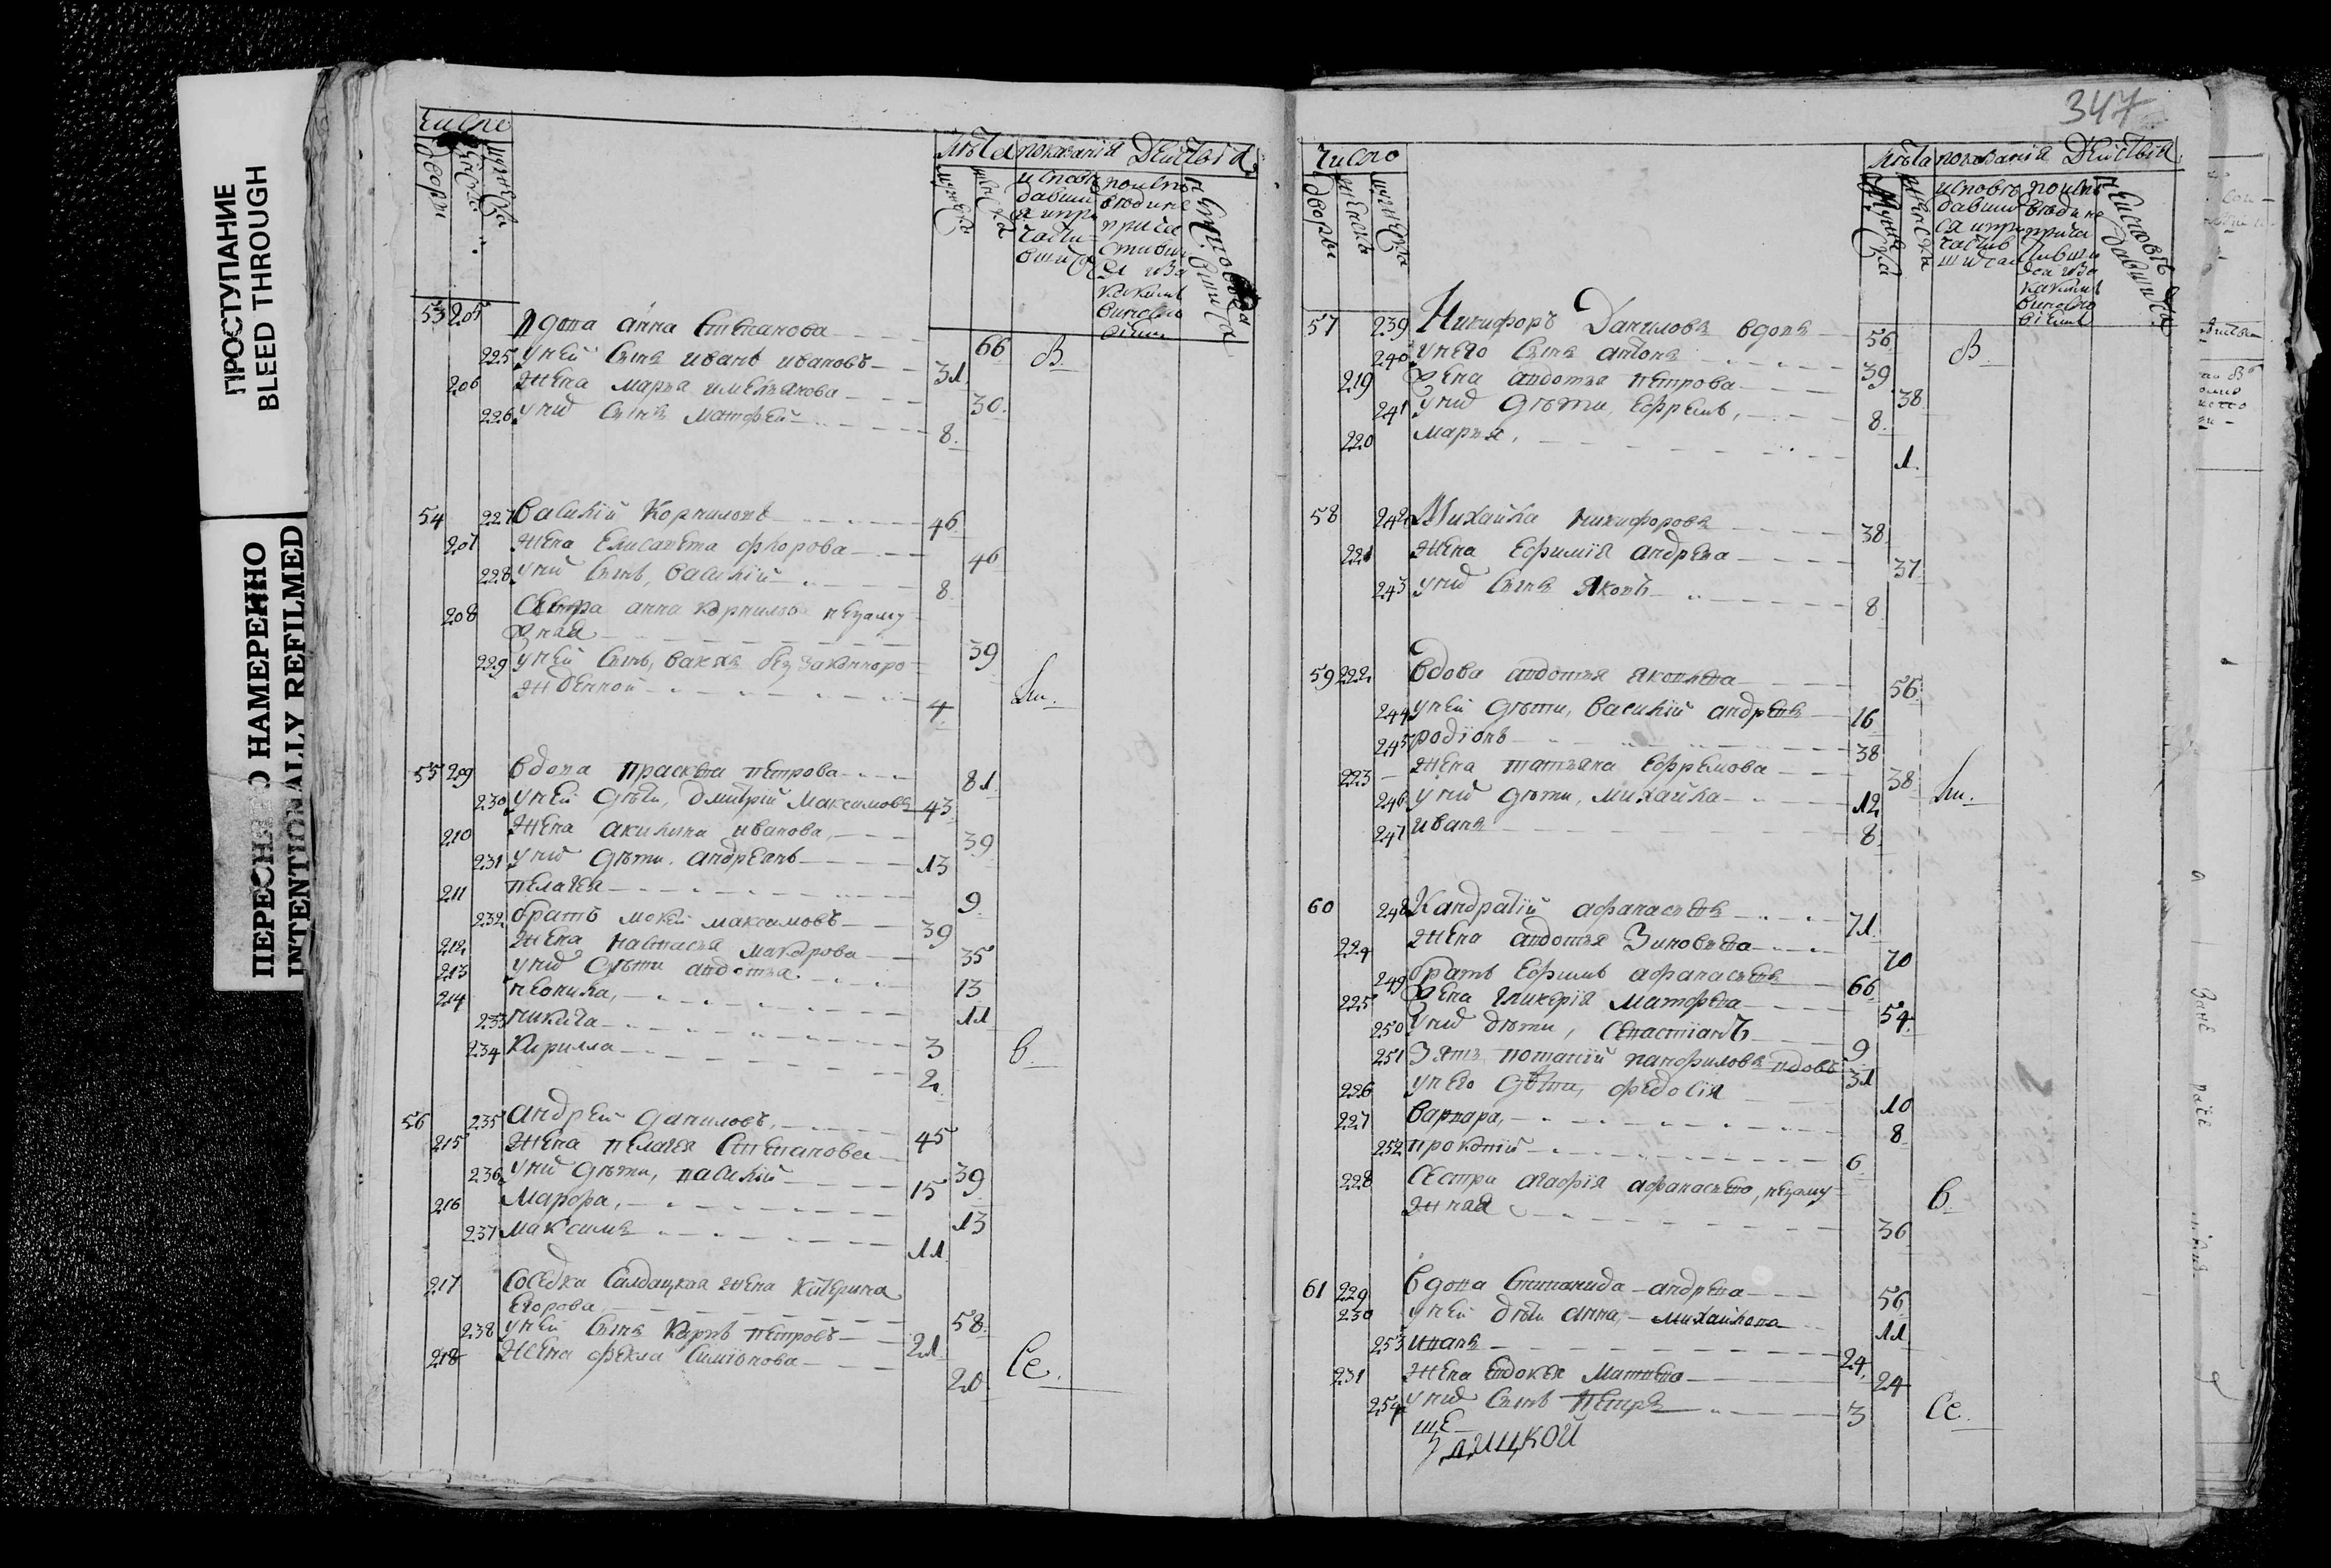 ПРОСТУПАНИЕ
BLEED THROUGH
ПЕРЕСНЯТО НАМЕРЕННО
INTENTIONALLY REFILMED
Число
дворы
женска
мужеска
лѣта показанія Действія
мужеска
женска
53 205 вдова анна Степанова 66 В.
225 у ней сынъ иванъ ивановъ 31
206 жена марья имельянова 30.
226 у них сынъ матфей 8.
54 227 василий Корниловъ 46
207 жена Елисавета фролова 46
228 у них сынъ, василий 8
208 Сестра анна корнилова незаму
жная 39
229 у ней сынъ, беззаконноро
жденной 4
55 209 вдова прасковья петрова 81.
230 у ней дѣти, дмитрий максимовъ 43
210 жена акилина иванова, 39
231 у них дѣти. андреянъ 13
211 пелагея 9
232 братъ мокей максимовъ 39
212 жена настасья макарова 35
213 у них дѣти авдотья. 13
214 неонила, 11
233 никита 3
234 Кирилла 2 в.
56 235 андрей даниловъ, 45
215 жена пелагея Степанова 39
236 у них дѣти, василий 15
216 Марфа, 13
237 максимъ 11
217 соседка салдацкая жена катерина
Егорова 58
238 у ней сынъ Карпъ петровъ 21
218 жена фекла Симионова 20 Се.
347
Число
дворы
женска
мужеска
лѣта показанія Действія
мужеска
женска
57 239 Никифоръ Даниловъ вдовъ 56 В
240 у него сынъ антонъ 39
219 жена авдотья петрова 38
241 у них дѣти, Ефремъ, 8
220 марья, 1.
58 242 Михайла никифоровъ 38
221 жена Ефимия андреева 37
243 у них сынъ яковъ 8
59 222 вдова авдотья яковлева 56
244 у ней дѣти, василий андреевъ 16
245 родионъ 38
223 жена татьяна Ефремова 38
246 у них дѣти, михайла 12
247 иванъ 8
60 248 Кандратий афанасьевъ 71.
224 жена авдотья Зиновьева 70
249 братъ Ефимъ афанасьевъ 66
225 жена гликерия матфеева 54
250 у них дѣти, севастианъ 9
251 Зять потапий панфиловъ вдовъ 31
226 у него дѣти, федосия 10
227 варвара, 8
252 прокопий 6
228 Сестра агафия афанасьева, незаму
жная 36 в.
61 229 вдова Степанида андреева 56
230 у ней дѣти анна, михайлова 11
253 иванъ 24
231 жена Евдокея Матвеева 24
254 у них сынъ Петръ 3 Се.